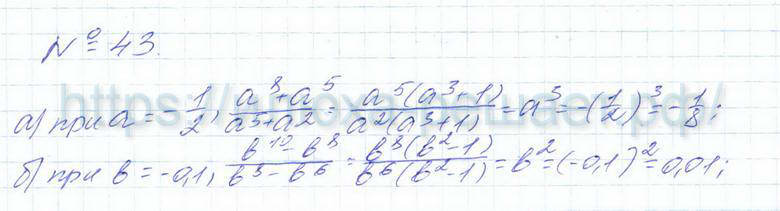 № 43.
а) при a = -1/2, (a^8+a^5)/(a^5+a^2) = (a^5(a^3+1))/(a^2(a^3+1)) = a^3 = -(1/2)^3 = -1/8;
б) при b = -0,1, (b^10-b^8)/(b^8-b^6) = (b^8(b^2-1))/(b^6(b^2-1)) = b^2 = (-0,1)^2 = 0,01;